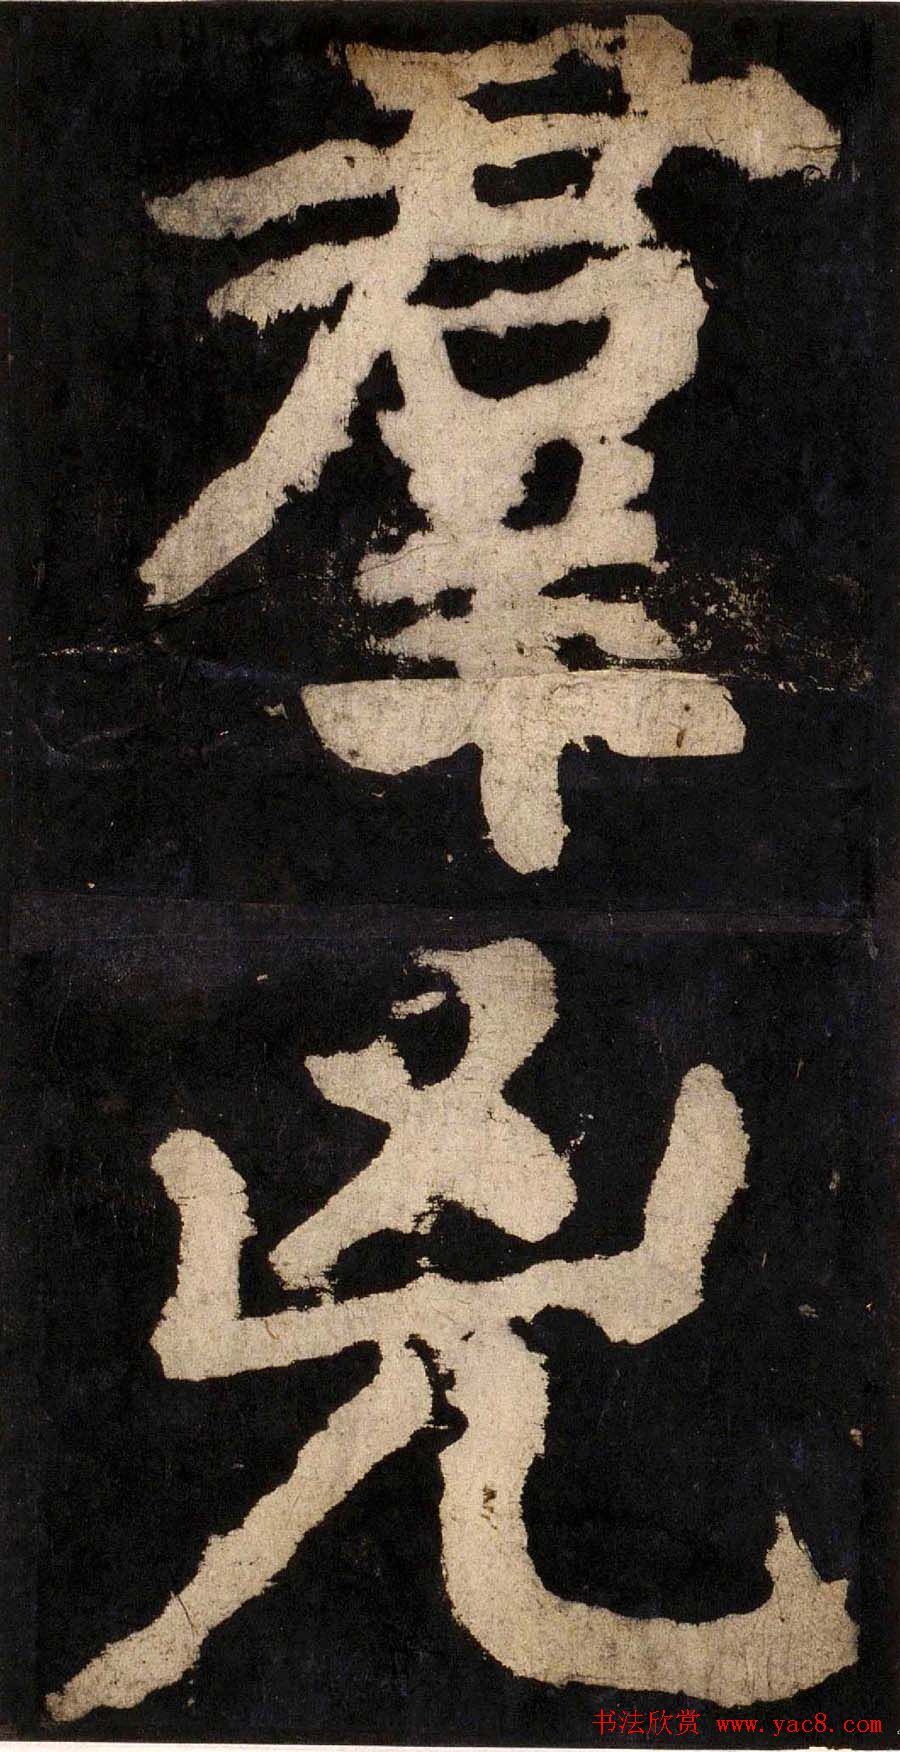 羣
兇
书法欣赏 www.yac8.com